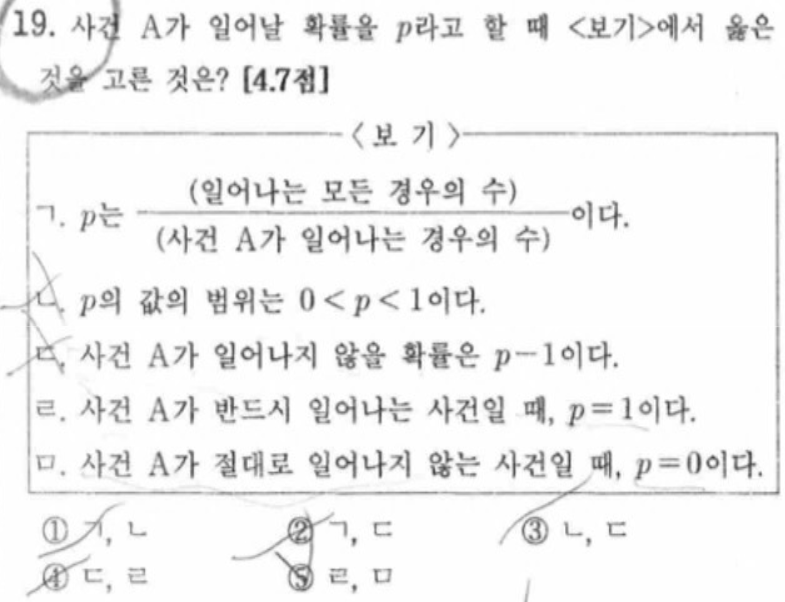 19. 사건 A가 일어날 확률을 p라고 할 때 <보기>에서 옳은
것을 고른 것은? [4.7점]
<보 기>
ㄱ. p는 (일어나는 모든 경우의 수)/(사건 A가 일어나는 경우의 수)이다.
ㄴ. p의 값의 범위는 0<p<1이다.
ㄷ. 사건 A가 일어나지 않을 확률은 p-1이다.
ㄹ. 사건 A가 반드시 일어나는 사건일 때, p=1이다.
ㅁ. 사건 A가 절대로 일어나지 않는 사건일 때, p=0이다.
① ㄱ, ㄴ ② ㄱ, ㄷ ③ ㄴ, ㄷ
④ ㄷ, ㄹ ⑤ ㄹ, ㅁ